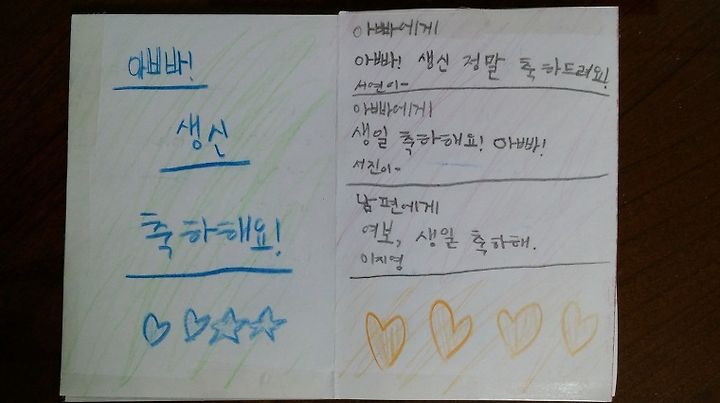 아빠!
생신
축하해요!
아빠에게
아빠! 생신 정말 축하드려요!
서연이-
아빠에게
생일 축하해요! 아빠!
서진이-
남편에게
여보, 생일 축하해.
이지영